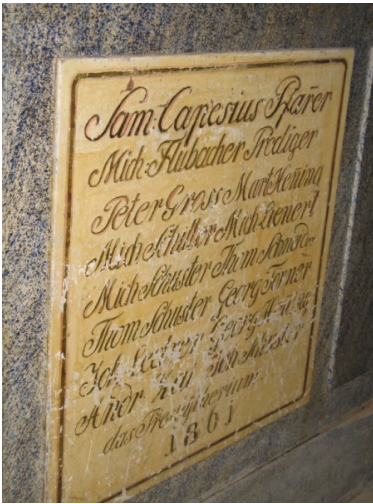 Sam. Capesius Pfarrer
Mich. Flubacher Prediger
Peter Gross Mart. Hennina
Mich Schuller Mich. Lienert
Mich Schuster Thom Schneider
Thom Schuster Georg Ferner
Joh. Georg
Andr Joh Schuster
das Presbyterium
1861